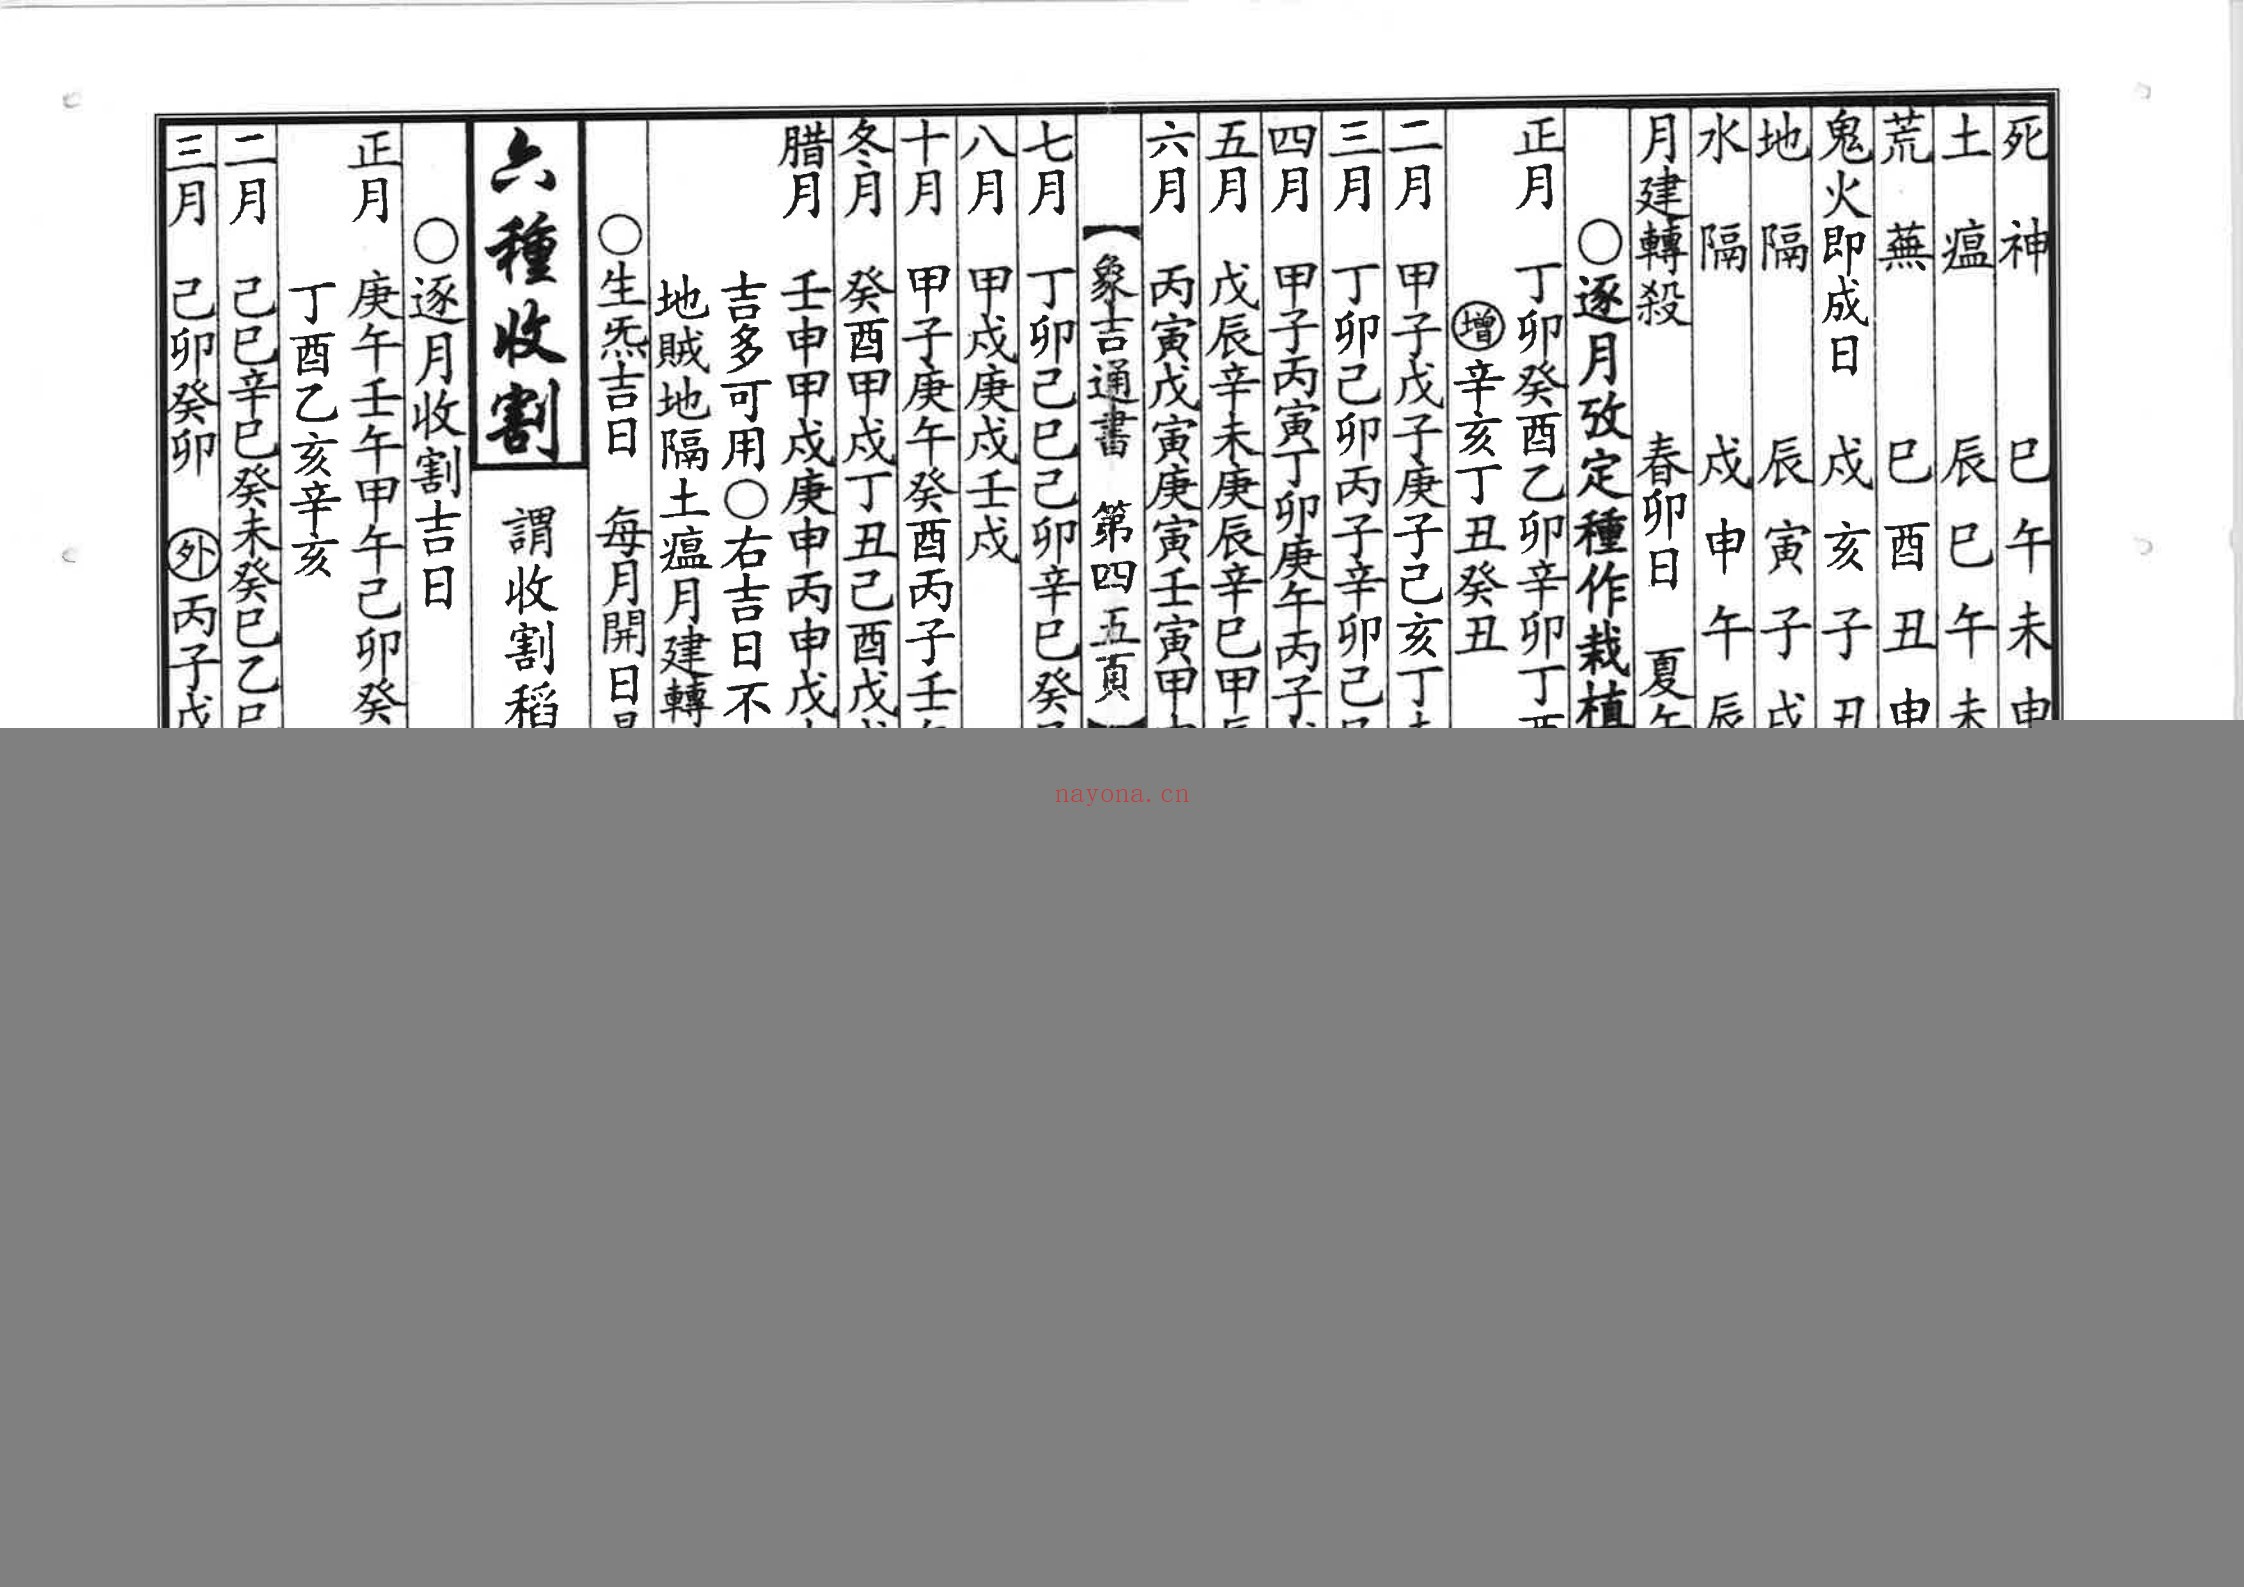 死神 巳午未申
土瘟 辰巳午未
荒蕪 巳酉丑申
鬼火即成日 戌亥子丑
地隔 辰寅子戌
水隔 戌申午辰
月建轉殺 春卯日 夏午
○逐月攷定種作栽植
正月 丁卯癸酉乙卯辛卯丁酉
增辛亥丁丑癸丑
二月 甲子戊子庚子己亥丁未
三月 丁卯己卯丙子辛卯己
四月 甲子丙寅丁卯庚午丙子
五月 戊辰辛未庚辰辛巳甲辰
六月 丙寅戊寅庚寅壬寅甲
【象吉通書 第四五頁】
七月 丁卯己巳己卯辛巳癸
八月 甲戌庚戌壬戌
十月 甲子庚午癸酉丙子壬午
冬月 癸酉甲戌丁丑己酉戊
腊月 壬申甲戌庚申丙申戊
吉多可用○右吉日不
地賊地隔土瘟月建轉
○生炁吉日 每月開日是
六種收割 謂收割稻
○逐月收割吉日
正月 庚午壬午甲午己卯癸
丁酉乙亥辛亥
二月 己巳辛巳癸未癸巳乙巳
三月 己卯癸卯 外丙子戊
nayona.cn